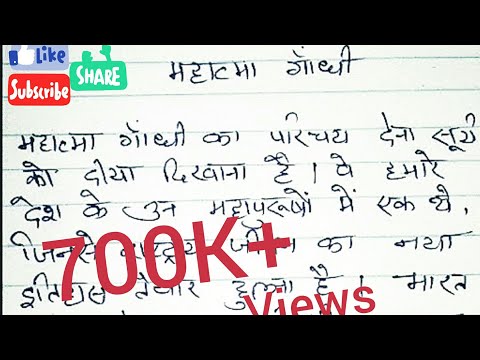 Like
SHARE
Subscribe
महात्मा गाँधी
महात्मा गाँधी का परिचय देना सूर्य
को दीया दिखाना है । वे हमारे
देश के उन महापुरूषों में एक थे,
जिनसे राष्ट्रीय जीवन का नया
700K+
इतिहास तैयार हुआ है । भारत
Views